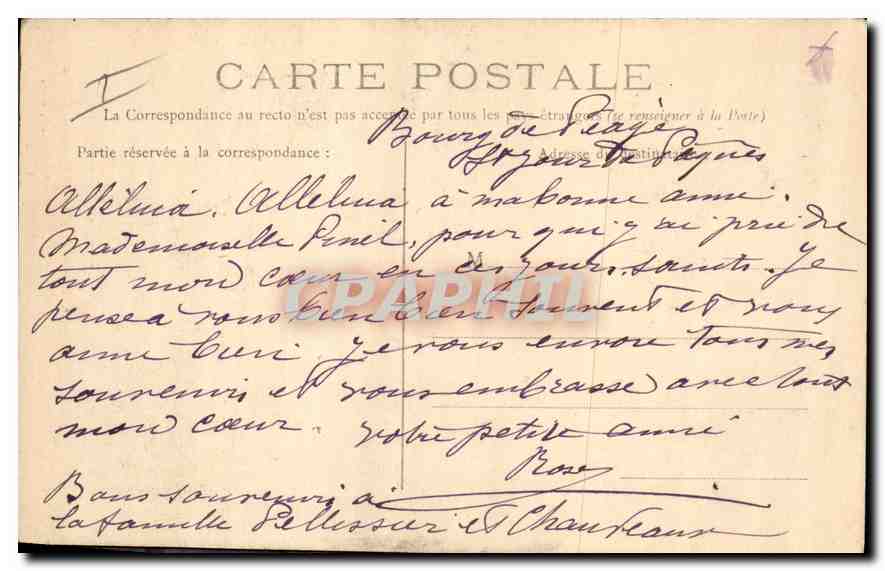 CARTE POSTALE
La Correspondance au recto n'est pas acceptée par tous les pays étrangers (se renseigner à la Poste)
Bourg de Péage
Partie réservée à la correspondance :
Adresse du destinataire
St jour de Pâques
Alleluia. Alleluia à ma bonne amie.
Mademoiselle Pinel, pour qui j'ai prié de
M
tout mon cœur en ces jours saints. Je
CPAPHIL
pense à vous bien bien souvent et vous
aime bien. Je vous envoie tous mes
souvenirs et vous embrasse avec tout
mon cœur. votre petite amie
Rose
Bons souvenirs à
la famille Pellissier et Chauveaux